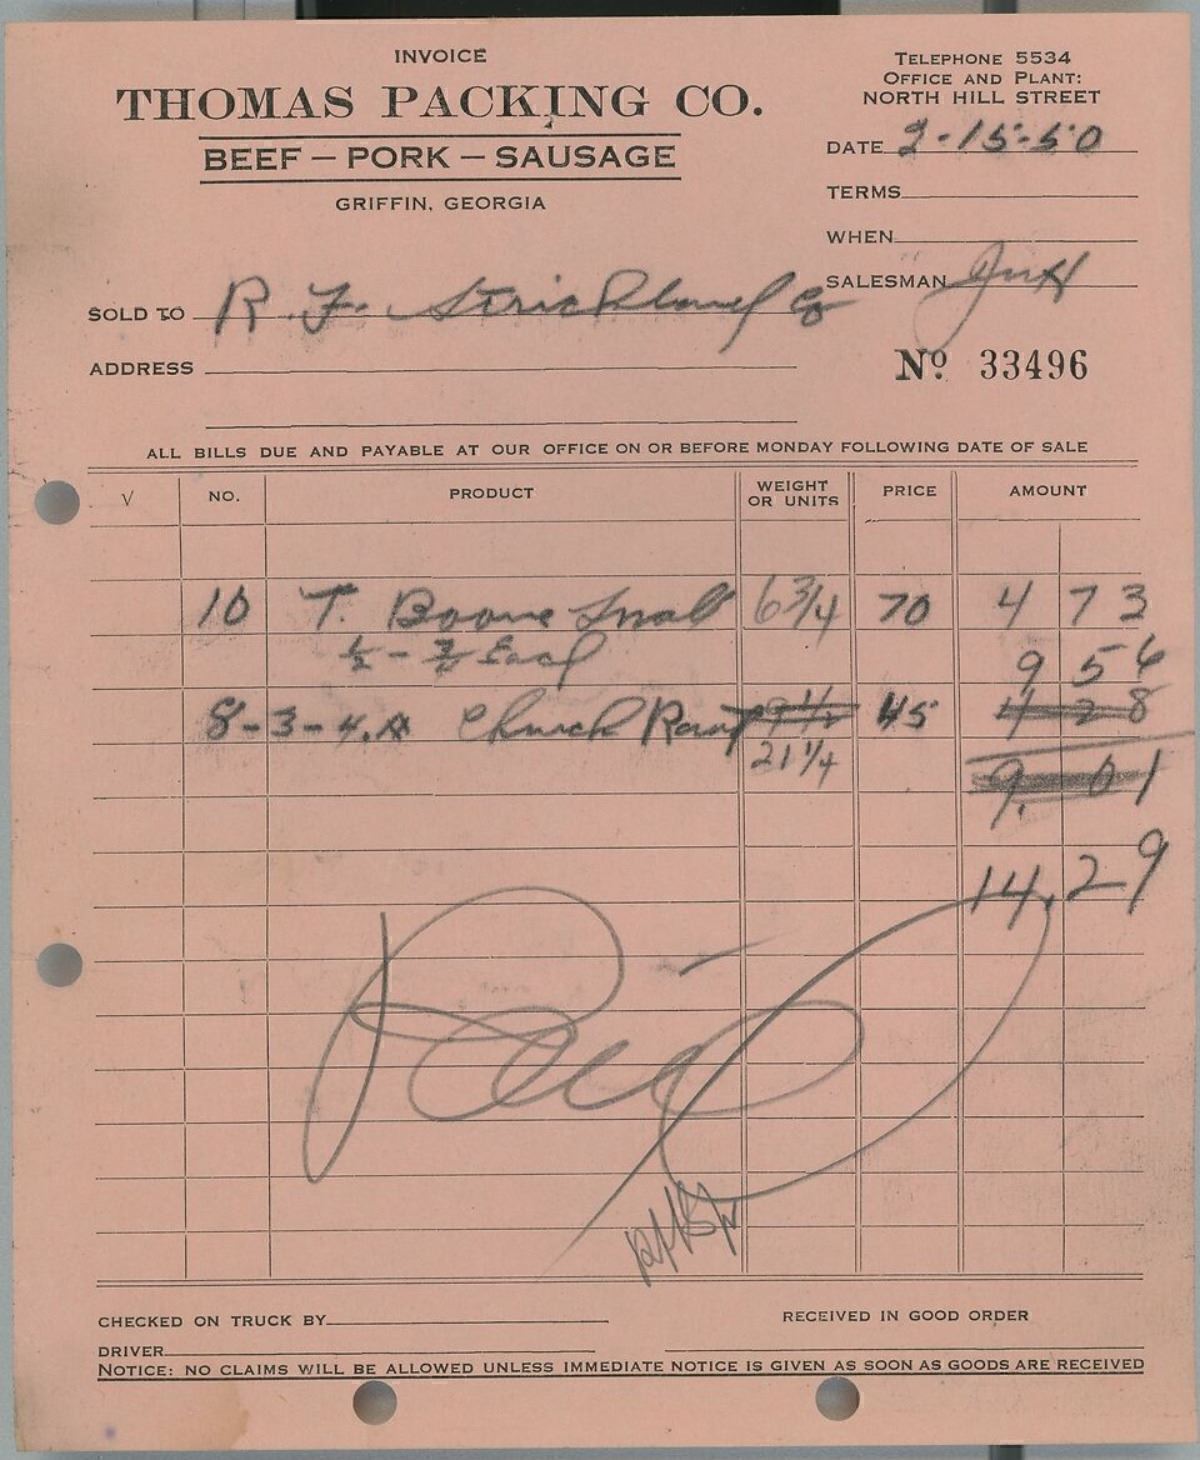 INVOICE
THOMAS PACKING CO.
BEEF — PORK — SAUSAGE
GRIFFIN, GEORGIA
TELEPHONE 5534
OFFICE AND PLANT:
NORTH HILL STREET
DATE 2-15-50
TERMS
WHEN
SALESMAN
SOLD TO R. F. Strickland Co
ADDRESS
No. 33496
ALL BILLS DUE AND PAYABLE AT OUR OFFICE ON OR BEFORE MONDAY FOLLOWING DATE OF SALE
√ NO. PRODUCT WEIGHT OR UNITS PRICE AMOUNT
10 T. Boone 6 3/4 70 4 73
Each 9 56
8-3-4. 9 1/2 45 4 28
21 1/4 9. 01
14.29
Paid
CHECKED ON TRUCK BY
RECEIVED IN GOOD ORDER
DRIVER
NOTICE: NO CLAIMS WILL BE ALLOWED UNLESS IMMEDIATE NOTICE IS GIVEN AS SOON AS GOODS ARE RECEIVED